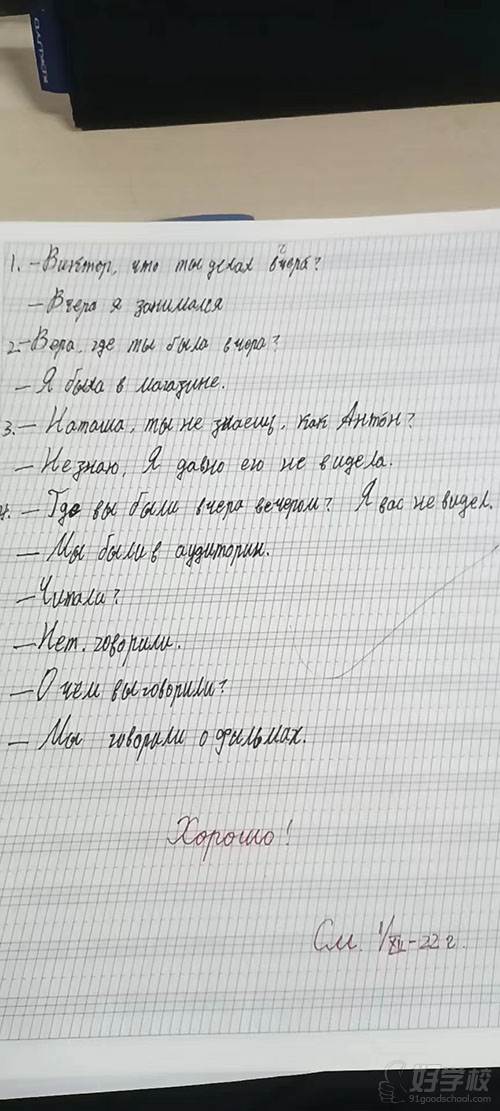 1. – Виктор, что ты делал вчера?
– Вчера я занимался
2. – Вера, где ты была вчера?
– Я была в магазине.
3. – Наташа, ты не знаешь, как Антóн?
– Не знаю, Я давно его не видела.
4. – Где вы были вчера вечером? Я вас не видел.
– Мы были в аудитории.
– Читали?
– Нет. говорили.
– О чём вы говорили?
– Мы говорили о фильмах.
Хорошо!
См. 1/XII – 22 г.
好学校
91goodschool.com